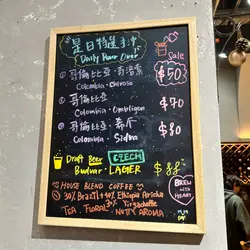 是日特選手沖
Daily Pour Over
Sale
① 哥倫比亞・
Colombia・Choroso
$50
② 哥倫比亞・
Colombia・Ombligon
$70
③ 哥倫比亞・希爪
Colombia・Sidra
$80
Draft Beer CZECH
Budvar LAGER
$88
HOUSE BLEND COFFEE
30% Brazil + 40% Ethiopia Aricha
30% Yirgacheffe
TEA FLORAL NUTTY AROMA
BREW with HEART